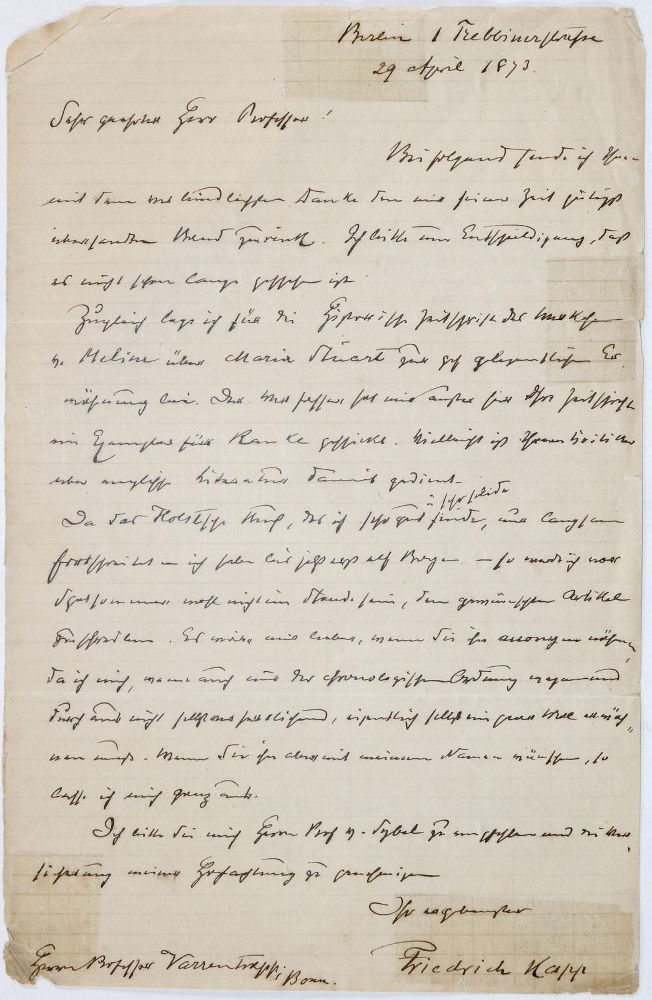 Berlin 1 Trebbinerstraße
29 April 1873.
Sehr geehrter Herr Professor!
Beifolgend sende ich Ihnen
mit dem verbindlichsten Danke den mir seiner Zeit gütigst
übersandten Band zurück. Ich bitte um Entschuldigung, daß
es nicht schon lange geschehen ist.
Zugleich lege ich für die Historische Zeitschrift das
v. Meline über Maria Stuart zur gef. gelegentlichen Er-
wähnung bei. Der Verfasser hat mir außer für Ihre Zeitschrift
ein Exemplar für Ranke geschickt. Vielleicht ist Ihrem
über englische Literatur damit gedient.
Da das Holstsche Werk, das ich sehr gut & sehr solide finde, nur langsam
fortschreitet – ich habe bis jetzt erst elf Bogen – so werde ich vor
Spätsommer wohl nicht im Stande sein, den gewünschten Artikel
zu schreiben. Es wäre mir lieber, wenn Sie ihn anonym nähmen,
da ich mich, wenn auch nur der chronologischen Ordnung wegen und
durchaus nicht selbstverherrlichend, eigentlich selbst ein paar Mal erwäh-
nen muß. Wenn Sie ihn aber mit meinem Namen wünschen, so
lasse ich mich ganz aus.
Ich bitte Sie mich Herrn Prof v. Sybel zu empfehlen und die Ver-
sicherung meiner Hochachtung zu genehmigen
Ihr ergebenster
Friedrich Kapp
Herrn Professor Varrentrapp, Bonn.